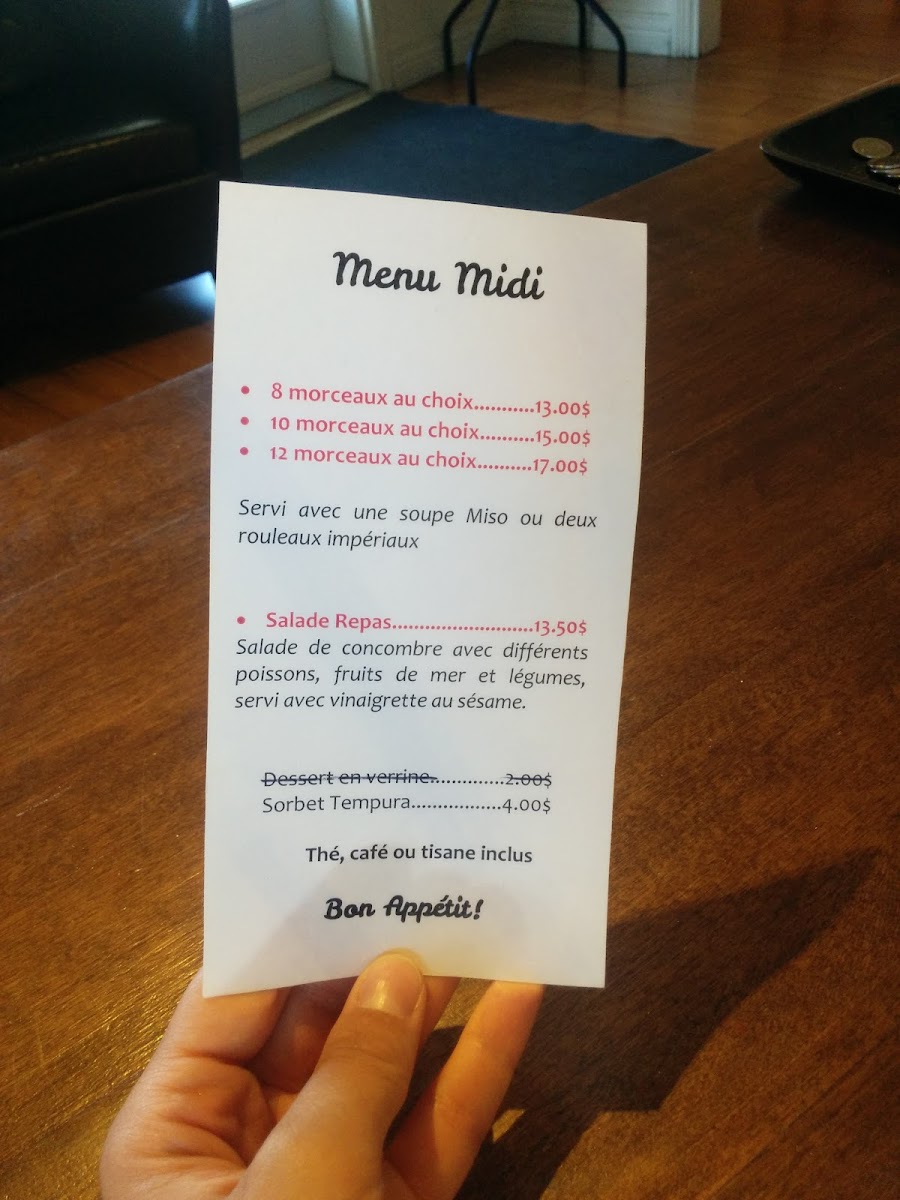 Menu Midi
• 8 morceaux au choix...........13.00$
• 10 morceaux au choix..........15.00$
• 12 morceaux au choix..........17.00$
Servi avec une soupe Miso ou deux
rouleaux impériaux
• Salade Repas..........................13.50$
Salade de concombre avec différents
poissons, fruits de mer et légumes,
servi avec vinaigrette au sésame.
Dessert en verrine..............2.00$
Sorbet Tempura.................4.00$
Thé, café ou tisane inclus
Bon Appétit!